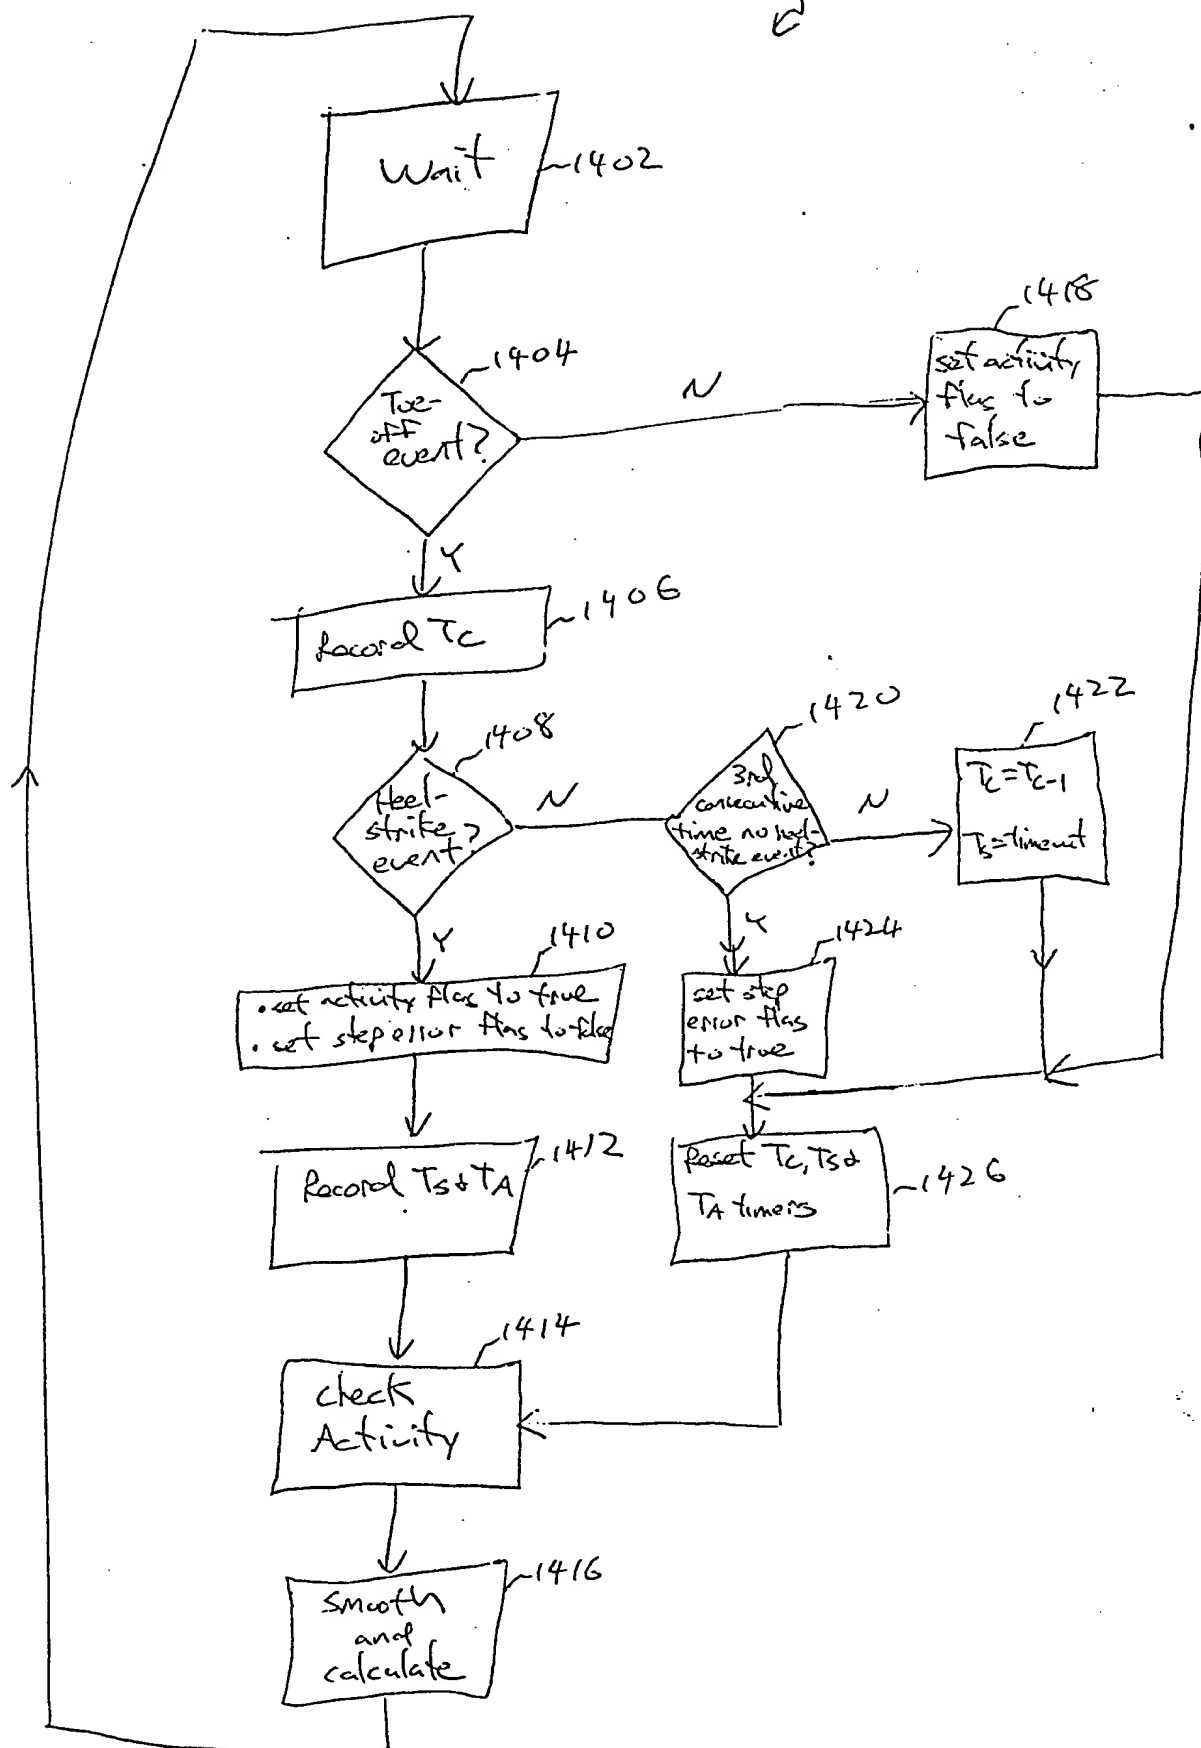 Wait
1402
1404
Toe-
off
event?
N
1418
set activity
flag to
false
Y
1406
Record Tc
1408
Heel-
strike
event?
N
1420
3rd
consecutive
time no heel-
strike event?
N
1422
Tc=Tc-1
Ts=timeout
Y
1410
• set activity flag to true
• set step error flag to false
Y
1424
set step
error flag
to true
1412
Record Ts & TA
Reset Tc, Ts &
TA timers
1426
1414
check
Activity
1416
smooth
and
calculate